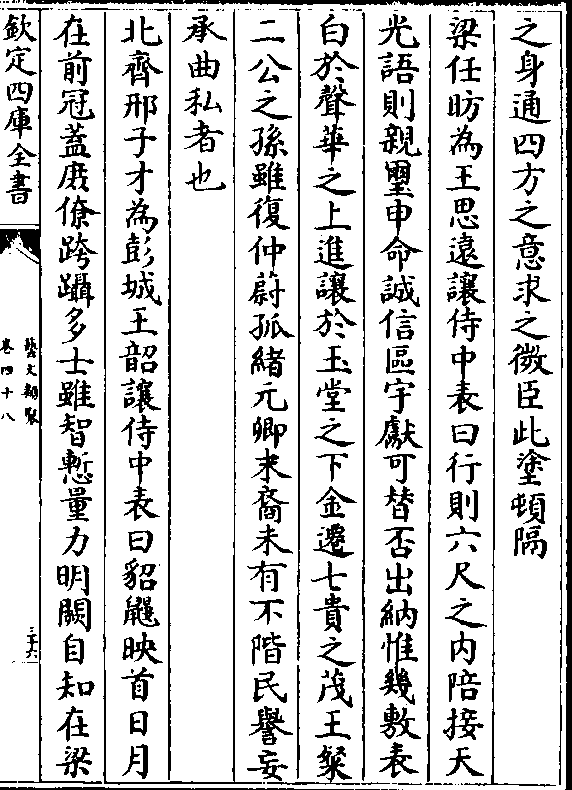 之身通四方之意求之微臣此塗頓隔
梁任昉為王思遠讓侍中表曰行則六尺之內陪接天
光語則親璽申命誠信區宇獻可替否出納惟幾敷表
白於聲華之上進讓於玉堂之下金遷七貴之茂王粲
二公之孫雖復仲蔚孤緒元卿末裔未有不階民譽妄
承曲私者也
北齊邢子才為彭城王韶讓侍中表曰貂鼲映首日月
在前冠蓋庶僚跨躡多士雖智慙量力明闕自知在梁
欽定四庫全書
藝文類聚
卷四十八
三十六